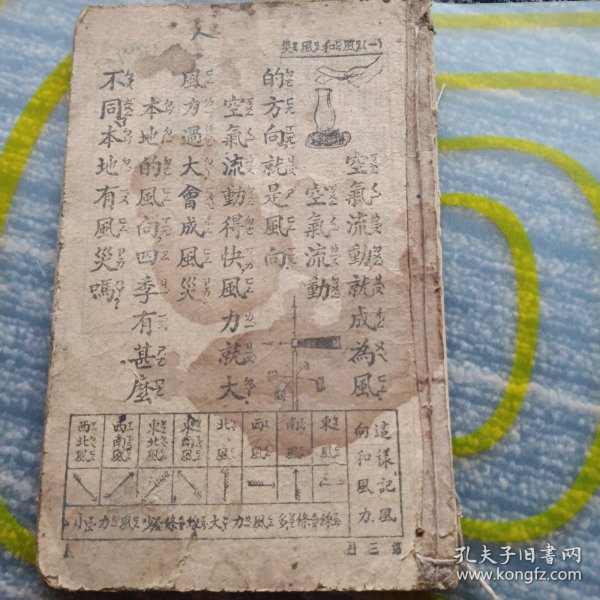 (一)風和風災
空氣流動就成為風
空氣流動
的方向就是風向
空氣流動得快風力就大
風力過大會成風災
本地的風向四季有甚麼
不同本地有風災嗎？
這樣記風
向和風力
東風
南風
西風
北風
東南風
東北風
西南風
西北風
線條多風力大線條少風力小
孔夫子旧书网
www.kongfz.com